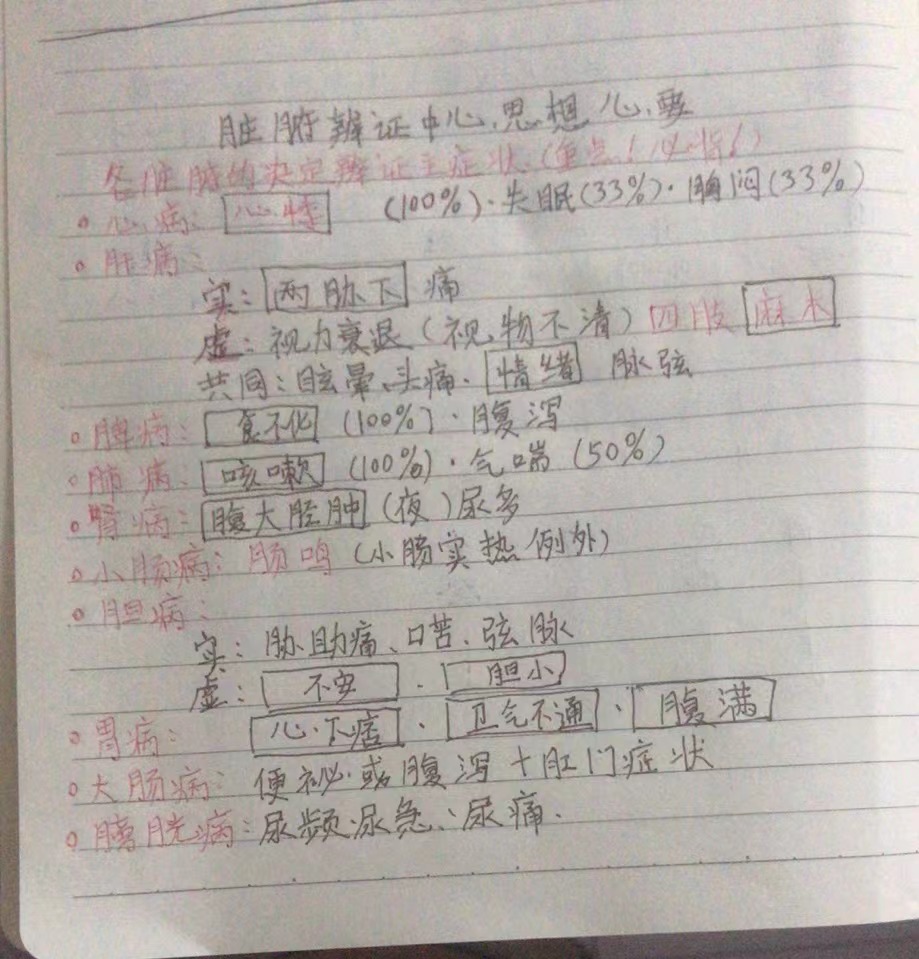 脏腑辨证中心思想心要
各脏腑的决定辨证主症状(重点!必背!)
。心病: 心悸 (100%)·失眠(33%)·胸闷(33%)
。肝病:
实: 两胁下 痛
虚: 视力衰退(视物不清)四肢 麻木
共同: 眩晕、头痛· 情绪 脉弦
。脾病: 食不化 (100%)·腹泻
。肺病: 咳嗽 (100%)·气喘(50%)
。肾病: 腹大胫肿 (夜)尿多
。小肠病: 肠鸣(小肠实热例外)
。胆病:
实: 胁肋痛、口苦、弦脉
虚: 不安 · 胆小
。胃病: 心下痞 · 卫气不通 · 腹满
。大肠病: 便祕或腹泻+肛门症状
。膀胱病: 尿频、尿急、尿痛.